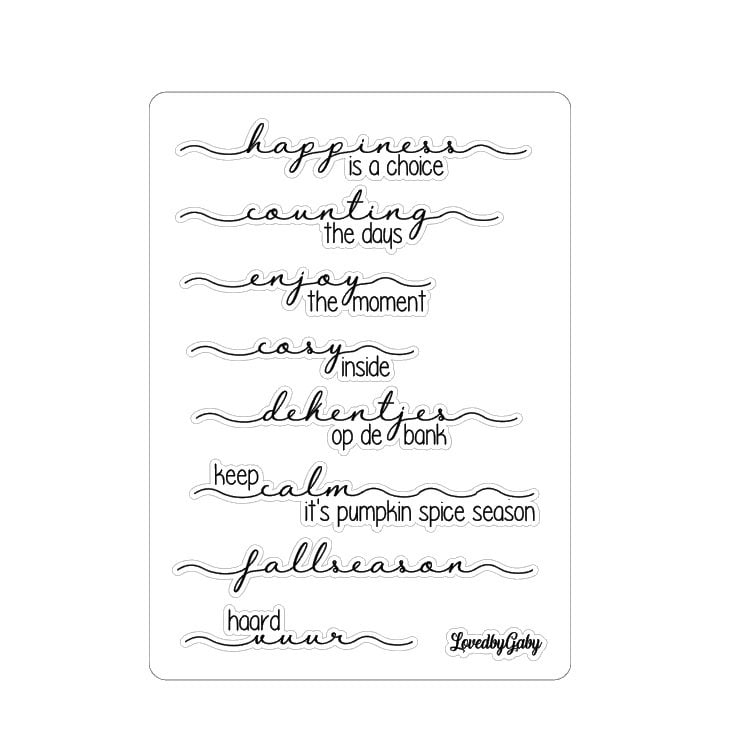 happiness
is a choice
counting
the days
enjoy
the moment
cosy
inside
dekentjes
op de bank
keep
calm
it's pumpkin spice season
fallseason
haard
vuur
LovedbyGaby